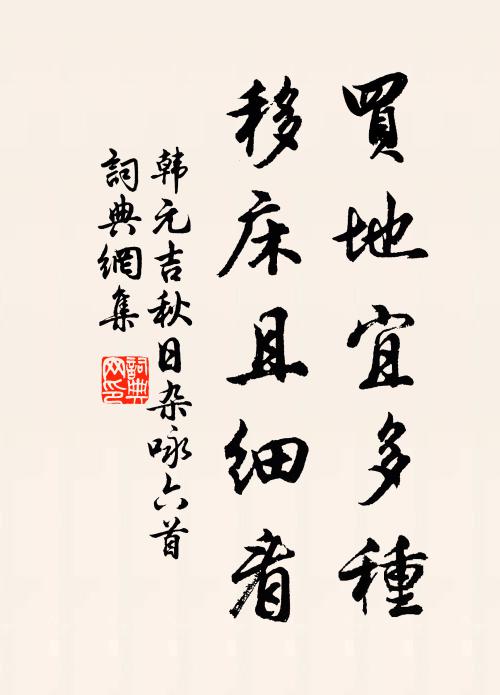 買地宜多種
移床且细看
韩元吉秋日杂咏六首
詞典網集
詞典网印